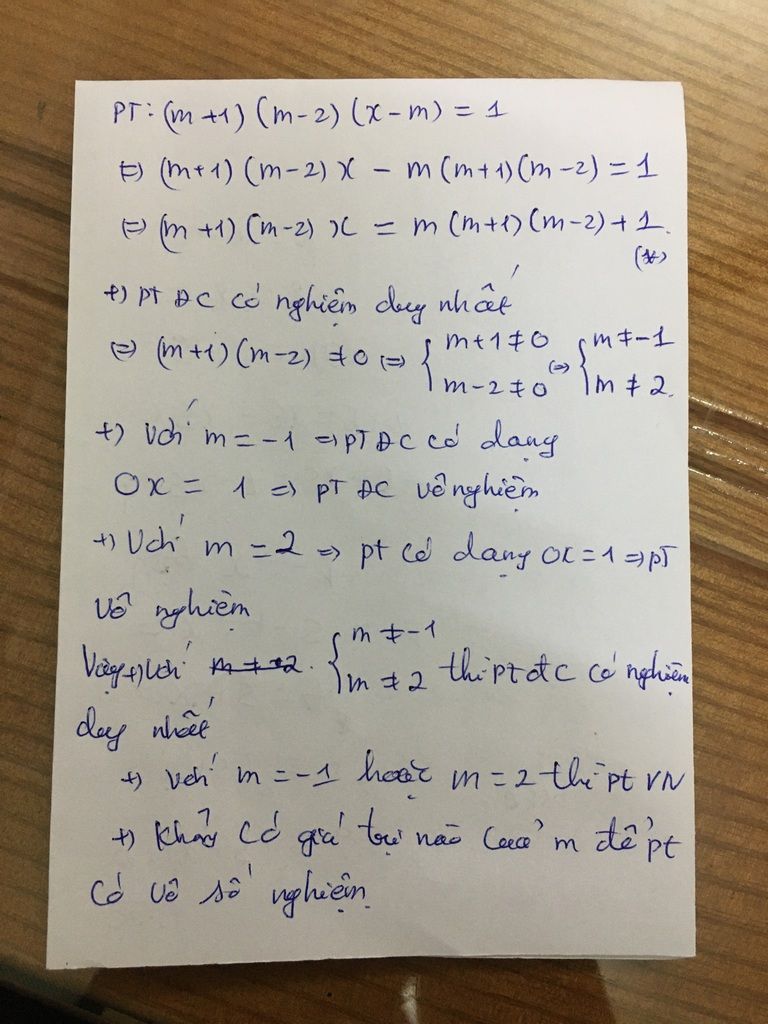 PT: (m+1)(m-2)(x-m) = 1
⇔ (m+1)(m-2)x - m(m+1)(m-2) = 1
⇔ (m+1)(m-2)x = m(m+1)(m-2)+1.
(*)
+) PT ĐC có nghiệm duy nhất
⇔ (m+1)(m-2) ≠ 0 ⇔ { m+1 ≠ 0 ⇔ { m ≠ -1
m-2 ≠ 0 m ≠ 2.
+) Với m = -1 ⇒ PT ĐC có dạng
0x = 1 ⇒ PT ĐC vô nghiệm
+) Với m = 2 ⇒ pt có dạng 0x = 1 ⇒ pT
vô nghiệm
Vậy +) Với { m ≠ -1
m ≠ 2 thì PT đC có nghiệm
duy nhất
+) với m = -1 hoặc m = 2 thì pt VN
+) Không có giá trị nào của m để pt
có vô số nghiệm.